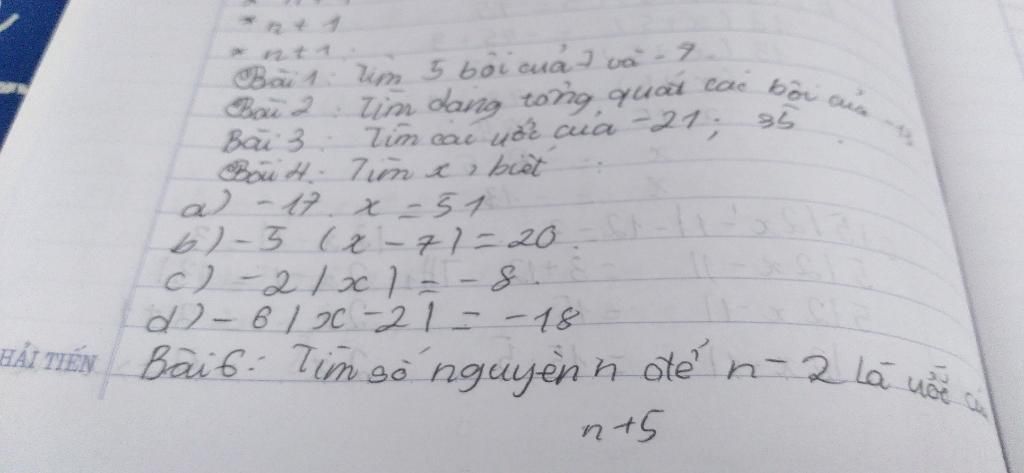 * n + 1
* n + 1
Bài 1 : Tìm 5 bội của 7 và - 9
Bài 2 : Tìm dạng tổng quát các bội của
Bài 3 : Tìm các ước của -21 ; 35
Bài 4 : Tìm x, biết
a) -17 . x = 51
b) - 5 (x - 7) = 20
c) - 2 |x| = - 8
d) - 6 |x - 2| = -18
HẢI TIẾN
Bài 6 : Tìm số nguyên n để n - 2 là ước của
n + 5